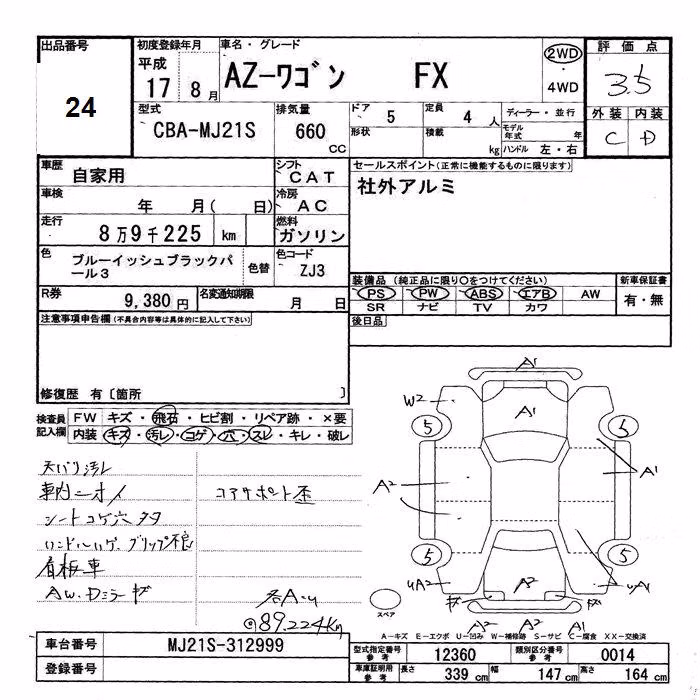 出品番号
24
初度登録年月
平成
17 8月
車名・グレード
AZ-ワゴン FX
2WD
・
4WD
評価点
3.5
外装 内装
C D
型式
CBA-MJ21S
排気量
660 CC
ドア 5
形状
定員 4 人
積載 kg
ディーラー・並行
モデル年式 年
ハンドル 左・右
車歴
自家用
シフト
CAT
車検
年 月( 日)
冷房
AC
走行
8万9千225 km
燃料
ガソリン
色
ブルーイッシュブラックパール3
色替
色コード
ZJ3
R券
9,380円
名変通知期限
月 日
セールスポイント(正常に機能するものに限ります)
社外アルミ
装備品 (純正品に限り○をつけてください)
PS PW ABS エアB AW
SR ナビ TV カワ
新車保証書
有・無
後日品
注意事項申告欄(不具合内容等は具体的に記入して下さい)
修復歴 有〔箇所 〕
検査員記入欄
FW キズ・飛石・ヒビ割・リペア跡・×要
内装 キズ・汚レ・コゲ・穴・スレ・キレ・破レ
天バリ汚レ
車内ニオイ
シートコゲ穴タタ
ハンドルハゲ、グリップ不良
看板車
AW.Dミラーキズ
コアサポート歪
各A.U
@89.224Km
A1
W2
A1
5
5
A2
A1
5
5
UA2
A2
UA1
スペア
A2
A2
A1
A-キズ E-エクボ U-凹み W-補修跡 S-サビ C-腐食 XX-交換済
車台番号 MJ21S-312999
登録番号
型式指定番号 参考 12360
類別区分番号 参考 0014
車庫証明用 参考 長さ 339 cm 幅 147 cm 高さ 164 cm